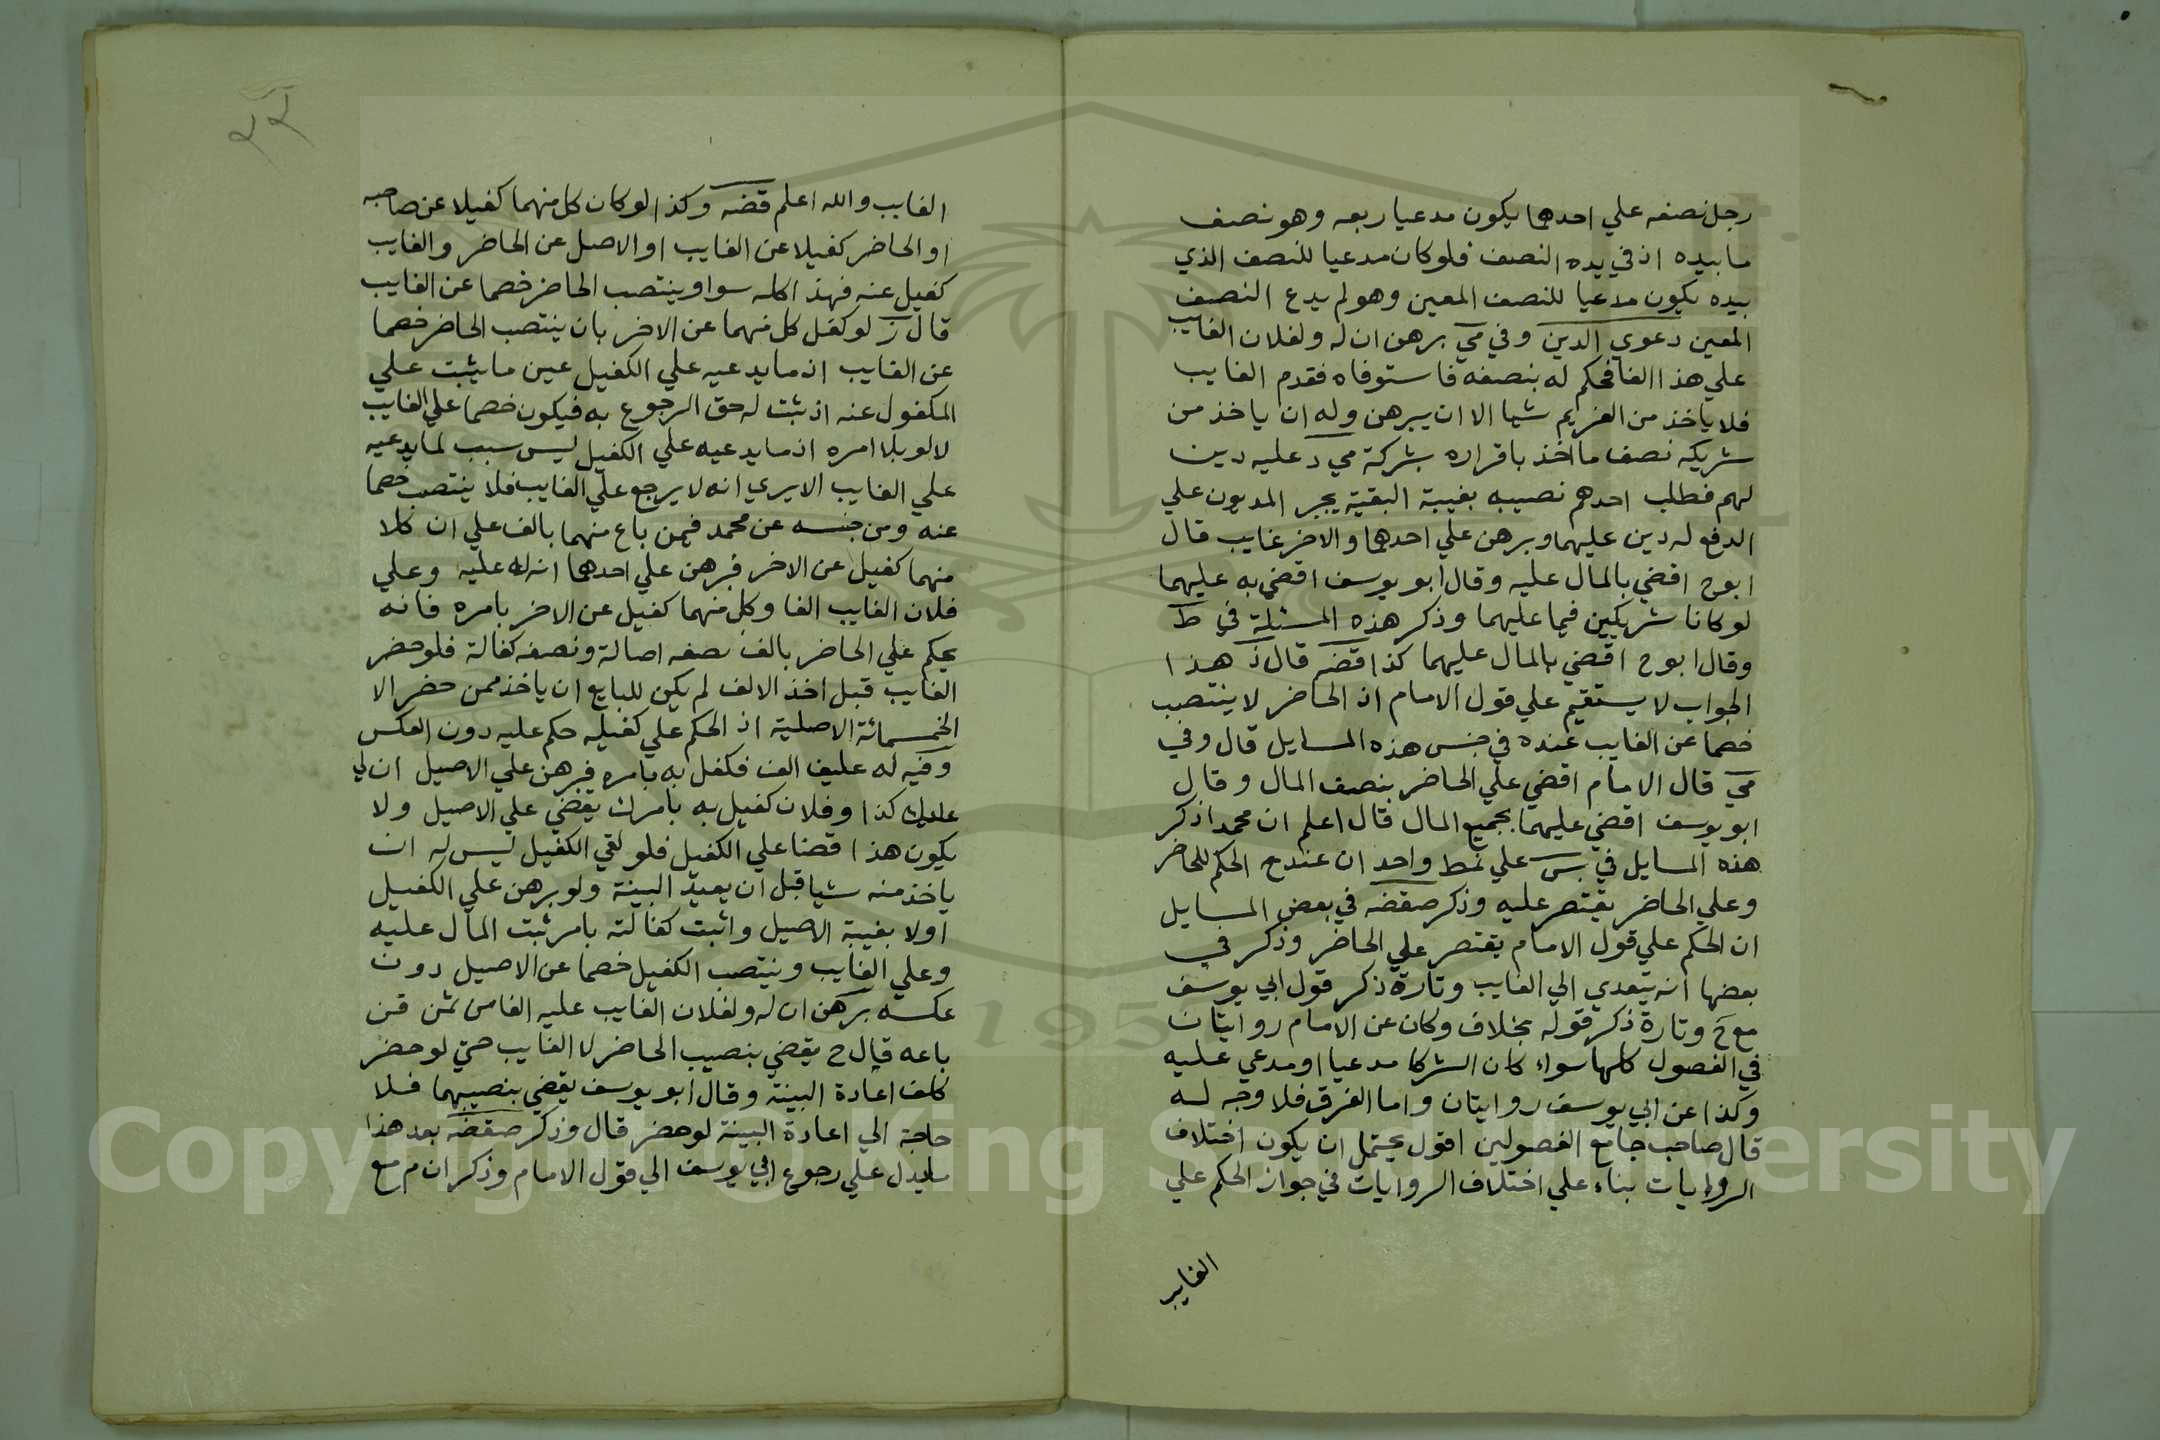 رجل نصفه علي احدهما يكون مدعيا ربعه وهو نصف
ما بيده اذ في يده النصف فلوكان مدعيا للنصف الذي
بيده يكون مدعيا للنصف المعين وهو لم يدع النصف
المعين دعوي الدين وفي مي برهن ان له ولفلان الغايب
علي هذا الفا فحكم له بنصفه فاستوفاه فقدم الغايب
فلا ياخذ من الغريم شيا الا ان يبرهن وله ان ياخذ من
شريكه نصف ما اخذ باقراره بشركة مي د عليه دين
لهم فطلب احدهم نصيبه بغيبة البقية يجبر المديون علي
الدفع له دين عليهما وبرهن علي احدهما والاخر غايب قال
ابوح اقضي بالمال عليه وقال ابو يوسف اقضي به عليهما
لو كانا شريكين فيما عليهما وذكر هذه المسئلة في ط
وقال ابوح اقضي بالمال عليهما كذا قضه قال ذ هذا
الجواب لا يستقيم علي قول الامام اذ الحاضر لا ينتصب
خصما عن الغايب عنده في جنس هذه المسايل قال وفي
مي قال الامام اقضي علي الحاضر بنصف المال وقال
ابو يوسف اقضي عليهما بجميع المال قال اعلم ان محمدا ذكر
هذه المسايل في بس علي نمط واحد ان عندح الحكم للحاضر
وعلي الحاضر يقتصر عليه وذكر صقضه في بعض المسايل
ان الحكم علي قول الامام يقتصر علي الحاضر وذكر في
بعضها انه يتعدي الي الغايب وتارة ذكر قول ابي يوسف
مع ح وتارة ذكر قوله بخلاف وكان عن الامام روايتان
في الفصول كلها سواء كان الشركا مدعيا او مدعي عليه
وكذا عن ابي يوسف روايتان واما الفرق فلا وجه له
قال صاحب جامع الفصولين اقول يحتمل ان يكون اختلاف
الروايات بناء علي اختلاف الروايات في جواز الحكم علي
الغايب
٢٢
الغايب والله اعلم قضه وكذا لوكان كل منهما كفيلا عن صاحبه
او الحاضر كفيلا عن الغايب او الاصل عن الحاضر والغايب
كفيل عنه فهذا كله سوا وينتصب الحاضر خصما عن الغايب
قال ز لو كفل كل منهما عن الاخر بان ينتصب الحاضر خصما
عن الغايب اذ ما يدعيه علي الكفيل عين ما يثبت علي
المكفول عنه اذ ثبت له حق الرجوع به فيكون خصما علي الغايب
لا لو بلا امره اذ ما يدعيه علي الكفيل ليس سبب لما يدعيه
علي الغايب الا يري انه لا يرجع علي الغايب فلا ينتصب خصما
عنه ومن جنسه عن محمد فيمن باع منهما بالف علي ان كلا
منهما كفيل عن الاخر فبرهن علي احدهما انه له عليه وعلي
فلان الغايب الفا وكل منهما كفيل عن الاخر بامره فانه
يحكم علي الحاضر بالف نصفه اصالة ونصفه كفالة فلو حضر
الغايب قبل اخذ الالف لم يكن للبايع ان ياخذ ممن حضر الا
الخمسمائة الاصلية اذ الحكم علي كفيله حكم عليه دون العكس
وفيه له عليه الف فكفل به بامره فبرهن علي الاصيل ان لي
عليك كذا وفلان كفيل به بامرك يقضي علي الاصيل ولا
يكون هذا قضا علي الكفيل فلو لقي الكفيل ليس له ان
ياخذ منه شيا قبل ان يعيد البينة ولو برهن علي الكفيل
اولا بغيبة الاصيل واثبت كفالته بامر ثبت المال عليه
وعلي الغايب وينتصب الكفيل خصما عن الاصيل دون
عكسه برهن ان له ولفلان الغايب عليه الفا من ثمن قن
باعه قال ح يقضي بنصيب الحاضر لا الغايب حتي لو حضر
كلف اعادة البينة وقال ابو يوسف يقضي بنصيبهما فلا
حاجة الي اعادة البينة لو حضر قال وذكر صقضه بعد هذا
ما يدل علي رجوع ابي يوسف الي قول الامام وذكر ان م مع
Copyright © King Saud University
1957